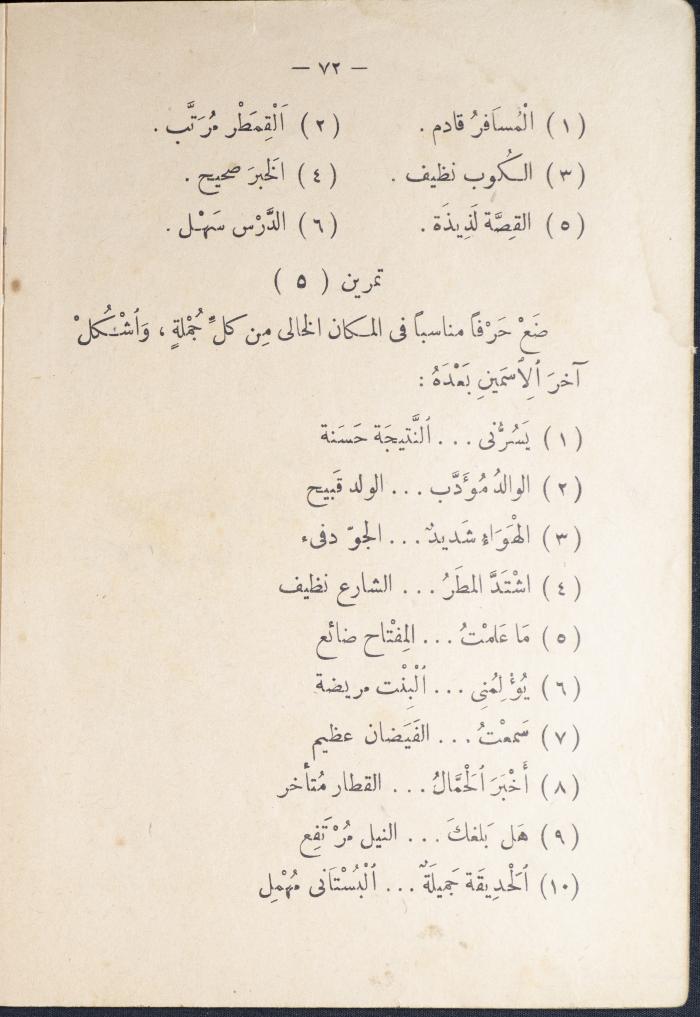 — ٧٢ —
(١) الْمُسَافرُ قادم . (٢) اَلْقِمَطْر مُرَتَّب .
(٣) الكُوب نظيف . (٤) الخبرَ صحيح .
(٥) القِصَّة لَذِيذَة . (٦) الدَّرْس سَهْل .
تمرين ( ٥ )
ضَعْ حَرْفاً مناسباً فى المكان الخالى مِن كلِّ جُمْلةٍ ، وَٱشْكُلْ
آخرَ ٱلِٱسَمَينِ بَعْدَهُ :
(١) يَسُرُّنى ... ٱلنَّتيجَة حَسَنة
(٢) الوالدُ مُؤَدَّب ... الولد قَبيح
(٣) الْهَوَاءُ شَديدٌ ... الجوّ دفىء
(٤) اشْتَدَّ المطَرُ ... الشارع نظيف
(٥) مَا عَلمْتُ ... المِفْتاح ضائع
(٦) يُؤْلمُنِى ... ٱلْبِنْت مريضة
(٧) سَمعْتُ ... الفَيَضان عظيم
(٨) أَخْبَرَ ٱلْحَمَّالُ ... القطار مُتأخر
(٩) هَل بَلغكَ ... النيل مُرْتَفِع
(١٠) ٱلْحَديقَة جَميلَةٌ ... ٱلْبُسْتَانى مُهْمِل